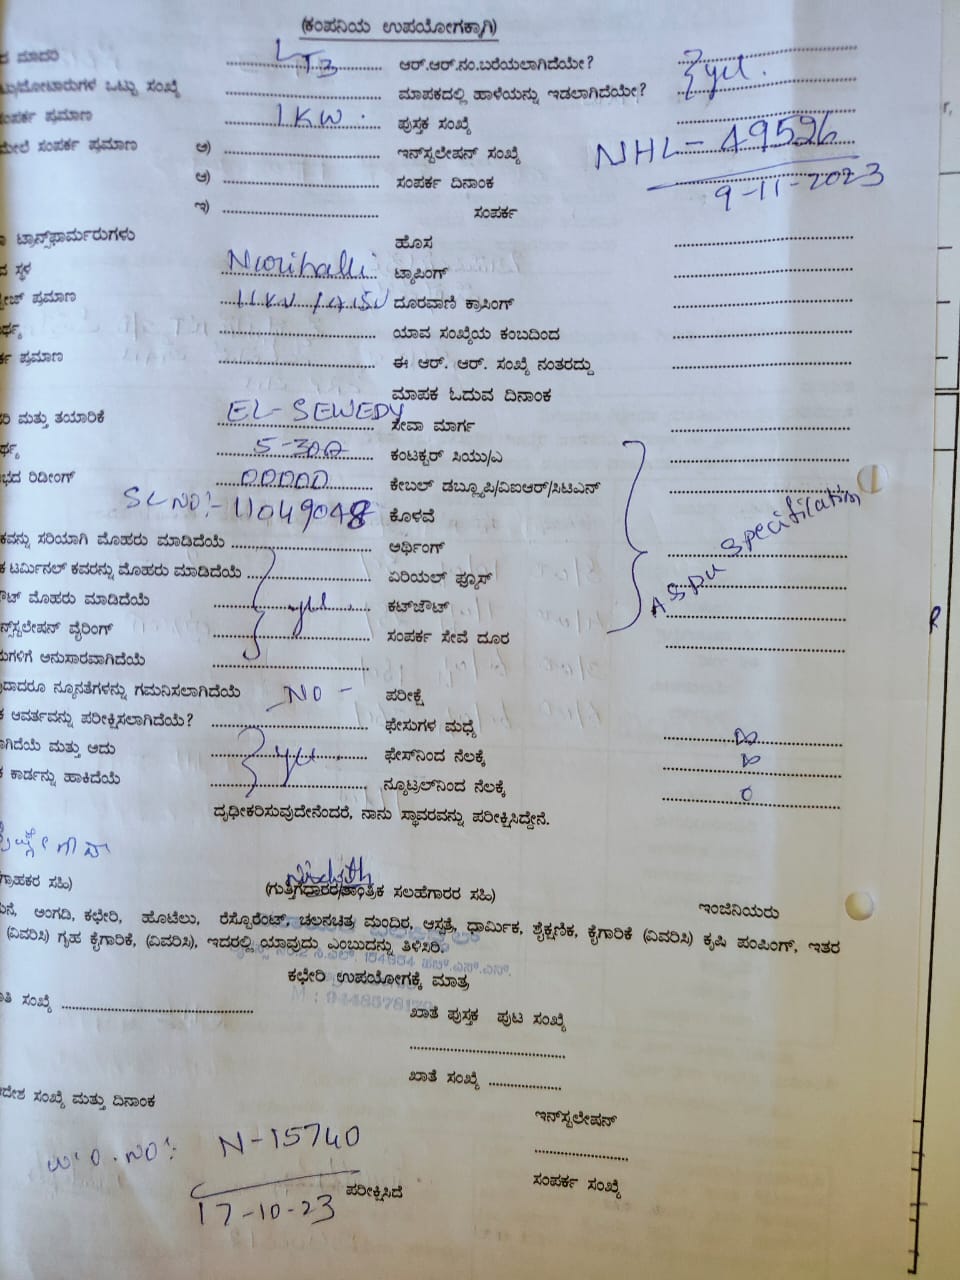 (ಕಂಪನಿಯ ಉಪಯೋಗಕ್ಕಾಗಿ)
ಮಾದರಿ LT3 ಆರ್.ಆರ್.ನಂ.ಬರೆಯಲಾಗಿದೆಯೇ?
ಒಟ್ಟು ಸಂಖ್ಯೆ ಮಾಪಕದಲ್ಲಿ ಹಾಳೆಯನ್ನು ಇಡಲಾಗಿದೆಯೇ? } yes.
ಸಂಪರ್ಕ ಪ್ರಮಾಣ 1 KW. ಪುಸ್ತಕ ಸಂಖ್ಯೆ
ಮೇಲೆ ಸಂಪರ್ಕ ಪ್ರಮಾಣ ಅ) ಇನ್‌ಸ್ಟಲೇಷನ್ ಸಂಖ್ಯೆ NHL-49526
ಆ) ಸಂಪರ್ಕ ದಿನಾಂಕ 9-11-2023
ಇ) ಸಂಪರ್ಕ
ಟ್ರಾನ್ಸ್‌ಫಾರ್ಮರುಗಳು ಹೊಸ
ಸ್ಥಳ ಟ್ಯಾಪಿಂಗ್
ಪ್ರಮಾಣ 11KV ದೂರವಾಣಿ ಕ್ರಾಸಿಂಗ್
ಯಾವ ಸಂಖ್ಯೆಯ ಕಂಬದಿಂದ
ಪ್ರಮಾಣ ಈ ಆರ್. ಆರ್. ಸಂಖ್ಯೆ ನಂತರದ್ದು
ಮಾಪಕ ಓದುವ ದಿನಾಂಕ
ಮತ್ತು ತಯಾರಿಕೆ EL-SEWEDY ಸೇವಾ ಮಾರ್ಗ
5-30A ಕಂಟಕ್ಟರ್ ಸಿಯು/ಎ
ರಿಡೀಂಗ್ 00000 ಕೇಬಲ್ ಡಬ್ಲ್ಯೂಪಿ/ವಿಐಆರ್/ಸಿಟಿಎನ್
SL NO:- 11049048 ಕೊಳವೆ
ಸರಿಯಾಗಿ ಮೊಹರು ಮಾಡಿದೆಯೆ ಆರ್ಥಿಂಗ್
ಟರ್ಮಿನಲ್ ಕವರನ್ನು ಮೊಹರು ಮಾಡಿದೆಯೆ ಏರಿಯಲ್ ಫ್ಯೂಸ್ AS Per Specification
ಮೊಹರು ಮಾಡಿದೆಯೆ yes ಕಟ್‌ಔಟ್
ವೈರಿಂಗ್ ಸಂಪರ್ಕ ಸೇವೆ ದೂರ
ಅನುಸಾರವಾಗಿದೆಯೆ
ನ್ಯೂನತೆಗಳನ್ನು ಗಮನಿಸಲಾಗಿದೆಯೆ - NO - ಪರೀಕ್ಷೆ
ಆವರ್ತವನ್ನು ಪರೀಕ್ಷಿಸಲಾಗಿದೆಯೆ? ಫೇಸುಗಳ ಮಧ್ಯೆ
ಮತ್ತು ಅದು yes ಫೇಸ್‌ನಿಂದ ನೆಲಕ್ಕೆ
ಕಾರ್ಡನ್ನು ಹಾಕಿದೆಯೆ ನ್ಯೂಟ್ರಲ್‌ನಿಂದ ನೆಲಕ್ಕೆ 0
ದೃಢೀಕರಿಸುವುದೇನೆಂದರೆ, ನಾನು ಸ್ಥಾವರವನ್ನು ಪರೀಕ್ಷಿಸಿದ್ದೇನೆ.
ಗ್ರಾಹಕರ ಸಹಿ) (ಗುತ್ತಿಗೆದಾರರ/ತಾಂತ್ರಿಕ ಸಲಹೆಗಾರರ ಸಹಿ) ಇಂಜಿನಿಯರು
ಅಂಗಡಿ, ಕಛೇರಿ, ಹೊಟೆಲು, ರೆಸ್ಟೊರೆಂಟ್, ಚಲನಚಿತ್ರ ಮಂದಿರ, ಆಸ್ಪತ್ರೆ, ಧಾರ್ಮಿಕ, ಶೈಕ್ಷಣಿಕ, ಕೈಗಾರಿಕೆ (ವಿವರಿಸಿ) ಕೃಷಿ ಪಂಪಿಂಗ್, ಇತರ
(ವಿವರಿಸಿ) ಗೃಹ ಕೈಗಾರಿಕೆ, (ವಿವರಿಸಿ), ಇದರಲ್ಲಿ ಯಾವುದು ಎಂಬುದನ್ನು ತಿಳಿಸಿರಿ.
ಕಛೇರಿ ಉಪಯೋಗಕ್ಕೆ ಮಾತ್ರ
ಸಂಖ್ಯೆ ಖಾತೆ ಪುಸ್ತಕ ಪುಟ ಸಂಖ್ಯೆ
ಖಾತೆ ಸಂಖ್ಯೆ
ಸಂಖ್ಯೆ ಮತ್ತು ದಿನಾಂಕ ಇನ್‌ಸ್ಟಲೇಷನ್
W.O.NO:- N-15740
ಸಂಪರ್ಕ ಸಂಖ್ಯೆ
17-10-23 ಪರೀಕ್ಷಿಸಿದೆ